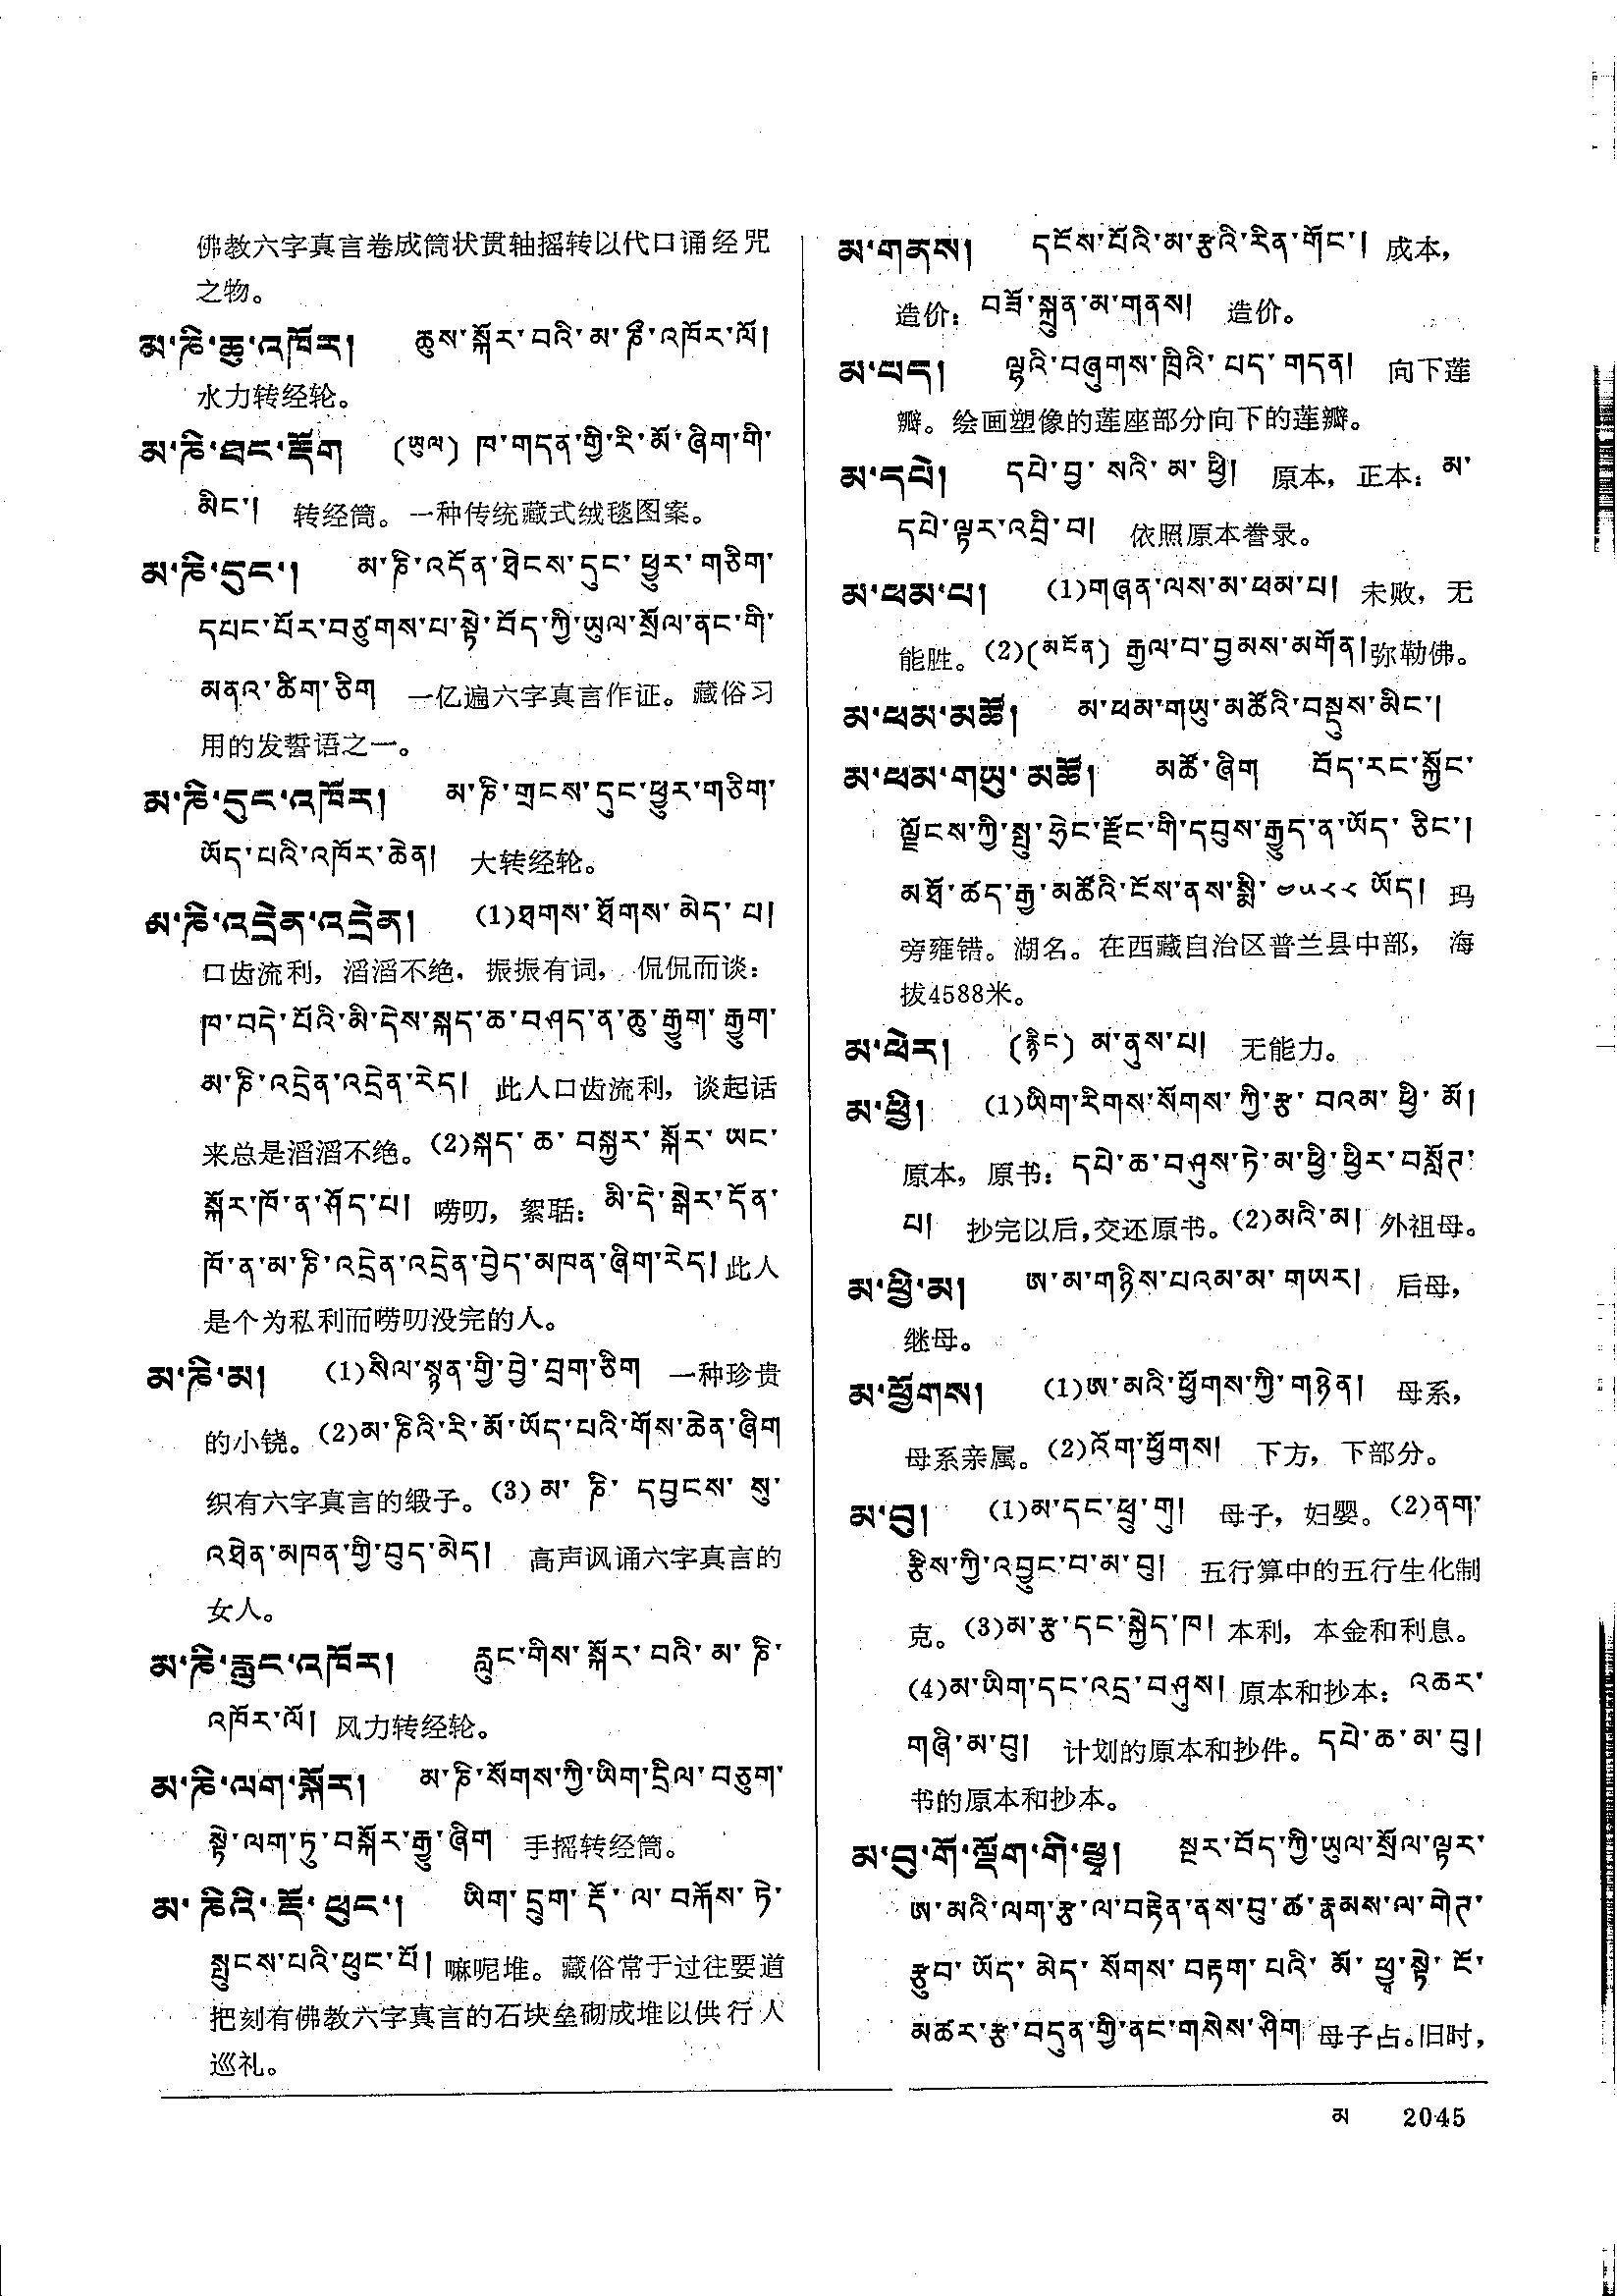 佛教六字真言卷成筒状贯轴摇转以代口诵经咒
之物。
མ་ཎི་ཆུ་འཁོར། ཆུས་སྐོར་བའི་མ་ཎི་འཁོར་ལོ།
水力转经轮。
མ་ཎི་ཐང་རྡོག (ཡུལ) ཁ་གདན་གྱི་རི་མོ་ཞིག་གི་
མིང་། 转经筒。一种传统藏式绒毯图案。
མ་ཎི་དུང་། མ་ཎི་འདོན་ཐེངས་དུང་ཕྱུར་གཅིག་
དཔང་པོར་བཙུགས་པ་སྟེ་བོད་ཀྱི་ཡུལ་སྲོལ་ནང་གི་
མནའ་ཚིག་ཅིག 一亿遍六字真言作证。藏俗习
用的发誓语之一。
མ་ཎི་དུང་འཁོར། མ་ཎི་གྲངས་དུང་ཕྱུར་གཅིག་
ཡོད་པའི་འཁོར་ཆེན། 大转经轮。
མ་ཎི་འདྲེན་འདྲེན། (1)ཐགས་ཐོགས་མེད་པ།
口齿流利，滔滔不绝，振振有词，侃侃而谈：
ཁ་བདེ་པོའི་མི་དེས་སྐད་ཆ་བཤད་ན་ཆུ་རྒྱུག་རྒྱུག་
མ་ཎི་འདྲེན་འདྲེན་རེད། 此人口齿流利，谈起话
来总是滔滔不绝。(2)སྐད་ཆ་བསྐྱར་སྐོར་ཡང་
སྐོར་ཁོ་ན་ཤོད་པ། 唠叨，絮聒：མི་དེ་སྒེར་དོན་
ཁོ་ན་མ་ཎི་འདྲེན་འདྲེན་བྱེད་མཁན་ཞིག་རེད། 此人
是个为私利而唠叨没完的人。
མ་ཎི་མ། (1)སིལ་སྙན་གྱི་བྱེ་བྲག་ཅིག 一种珍贵
的小铙。(2)མ་ཎིའི་རི་མོ་ཡོད་པའི་གོས་ཆེན་ཞིག
织有六字真言的缎子。(3)མ་ཎི་དབྱངས་སུ་
འཐེན་མཁན་གྱི་བུད་མེད། 高声讽诵六字真言的
女人。
མ་ཎི་རླུང་འཁོར། རླུང་གིས་སྐོར་བའི་མ་ཎི་
འཁོར་ལོ། 风力转经轮。
མ་ཎི་ལག་སྐོར། མ་ཎི་སོགས་ཀྱི་ཡིག་དྲིལ་བཅུག་
སྟེ་ལག་ཏུ་བསྐོར་རྒྱུ་ཞིག 手摇转经筒。
མ་ཎིའི་རྡོ་ཕུང་། ཡིག་དྲུག་རྡོ་ལ་བརྐོས་ཏེ་
སྤུངས་པའི་ཕུང་པོ། 嘛呢堆。藏俗常于过往要道
把刻有佛教六字真言的石块垒砌成堆以供行人
巡礼。
མ་གནས། དངོས་པོའི་མ་རྩའི་རིན་གོང་། 成本，
造价：བཟོ་སྐྲུན་མ་གནས། 造价。
མ་པད། ལྷའི་བཞུགས་ཁྲིའི་པད་གདན། 向下莲
瓣。绘画塑像的莲座部分向下的莲瓣。
མ་དཔེ། དཔེ་བྱ་སའི་མ་ཕྱི། 原本，正本：མ་
དཔེ་ལྟར་འབྲི་བ། 依照原本誊录。
མ་ཕམ་པ། (1)གཞན་ལས་མ་ཕམ་པ། 未败，无
能胜。(2)(མངོན) རྒྱལ་བ་བྱམས་མགོན། 弥勒佛。
མ་ཕམ་མཚོ། མ་ཕམ་གཡུ་མཚོའི་བསྡུས་མིང་།
མ་ཕམ་གཡུ་མཚོ། མཚོ་ཞིག བོད་རང་སྐྱོང་
ལྗོངས་ཀྱི་སྤུ་ཧྲེང་རྫོང་གི་དབུས་རྒྱུད་ན་ཡོད་ཅིང་།
མཐོ་ཚད་རྒྱ་མཚོའི་ངོས་ནས་སྨི་༤༥༨༨ ཡོད། 玛
旁雍错。湖名。在西藏自治区普兰县中部，海
拔4588米。
མ་ཕེར། (རྙིང) མ་ནུས་པ། 无能力。
མ་ཕྱི། (1)ཡིག་རིགས་སོགས་ཀྱི་རྩ་བའམ་ཕྱི་མོ།
原本，原书：དཔེ་ཆ་བཤུས་ཏེ་མ་ཕྱི་ཕྱིར་བསློཊ་
པ། 抄完以后，交还原书。(2)མའི་མ། 外祖母。
མ་ཕྱི་མ། ཨ་མ་གཉིས་པའམ་མ་གཡར། 后母，
继母。
མ་ཕྱོགས། (1)ཨ་མའི་ཕྱོགས་ཀྱི་གཉེན། 母系，
母系亲属。(2)འོག་ཕྱོགས། 下方，下部分。
མ་བུ། (1)མ་དང་ཕྲུ་གུ། 母子，妇婴。(2)ནག་
རྩིས་ཀྱི་འབྱུང་བ་མ་བུ། 五行算中的五行生化制
克。(3)མ་རྩ་དང་སྐྱེད་ཁ། 本利，本金和利息。
(4)མ་ཡིག་དང་འདྲ་བཤུས། 原本和抄本：འཆར་
གཞི་མ་བུ། 计划的原本和抄件。དཔེ་ཆ་མ་བུ།
书的原本和抄本。
མ་བུ་གོ་ལྡོག་གི་ཕྱྭ། སྔར་བོད་ཀྱི་ཡུལ་སྲོལ་ལྟར་
ཨ་མའི་ལག་རྩ་ལ་བརྟེན་ནས་བུ་ཚ་རྣམས་ལ་གེཊ་
རྩུབ་ཡོད་མེད་སོགས་བརྟག་པའི་མོ་ཕྱྭ་སྟེ་ངོ་
མཚར་རྩ་བདུན་གྱི་ནང་གསེས་ཤིག 母子占。旧时，
མ 2045